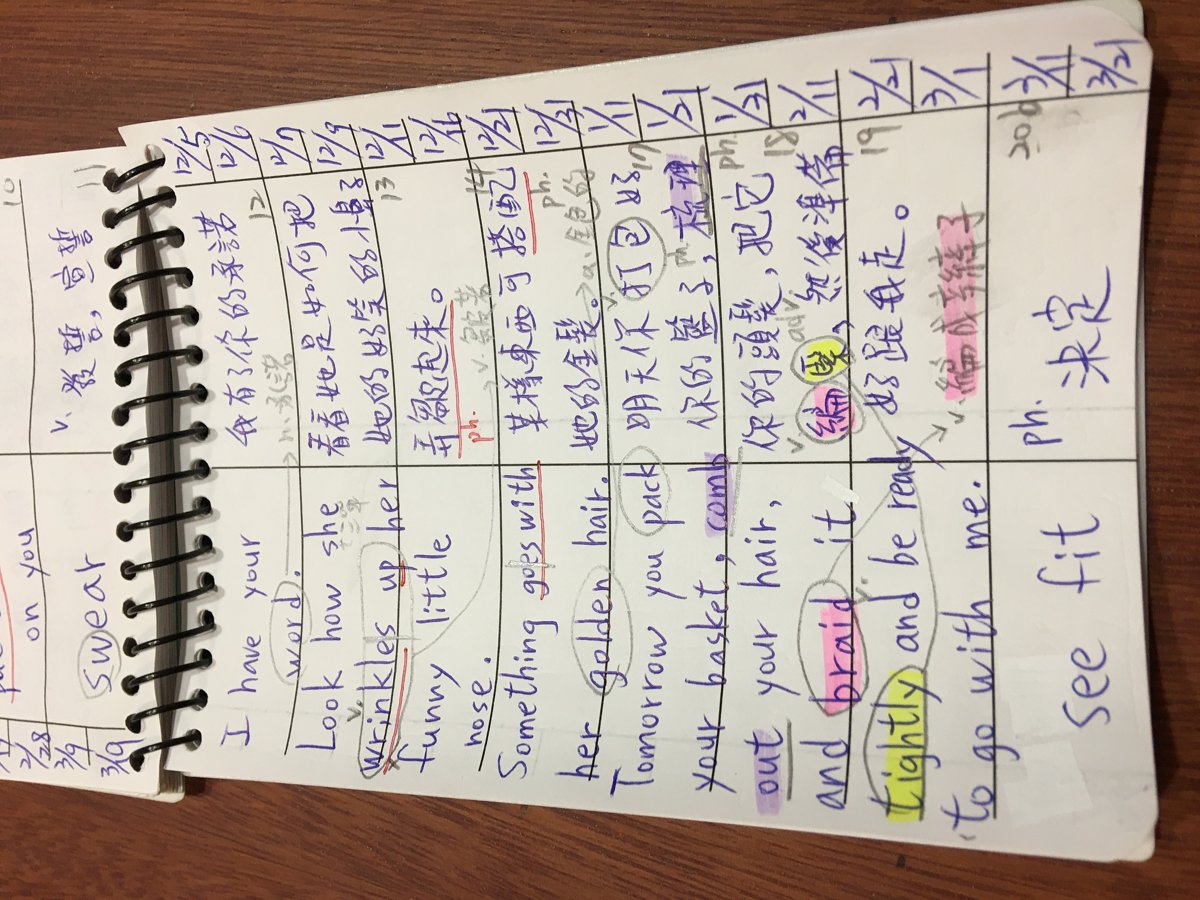 10
on you
2/28
3/9
swear
v. 發誓，宣誓
11
3/9
I have your
word.
我有了你的承諾
n. 承諾
12
12/5
12/6
Look how she
v.
wrinkles up her
funny little
nose.
看看她是如何把
她的好笑的小鼻子
弄皺起來。
ph.
13
14
12/7
12/9
12/11
12/16
Something goes with
her golden hair.
某樣東西可搭配
ph.
她的金髮。
a. 金色的
12/21
12/31
Tomorrow you pack
your basket, comb
out your hair,
and braid it
v.
tightly and be ready
to go with me.
v.
明天你打包好
17
ph.
你的籃子，梳理
ph.
你的頭髮，把它
18
v.
adv
編緊，然後準備
好跟我走。
19
v. 編成辮子
1/11
1/21
1/31
2/11
2/21
3/1
See fit
ph.
決定
20b
3/11
3/21